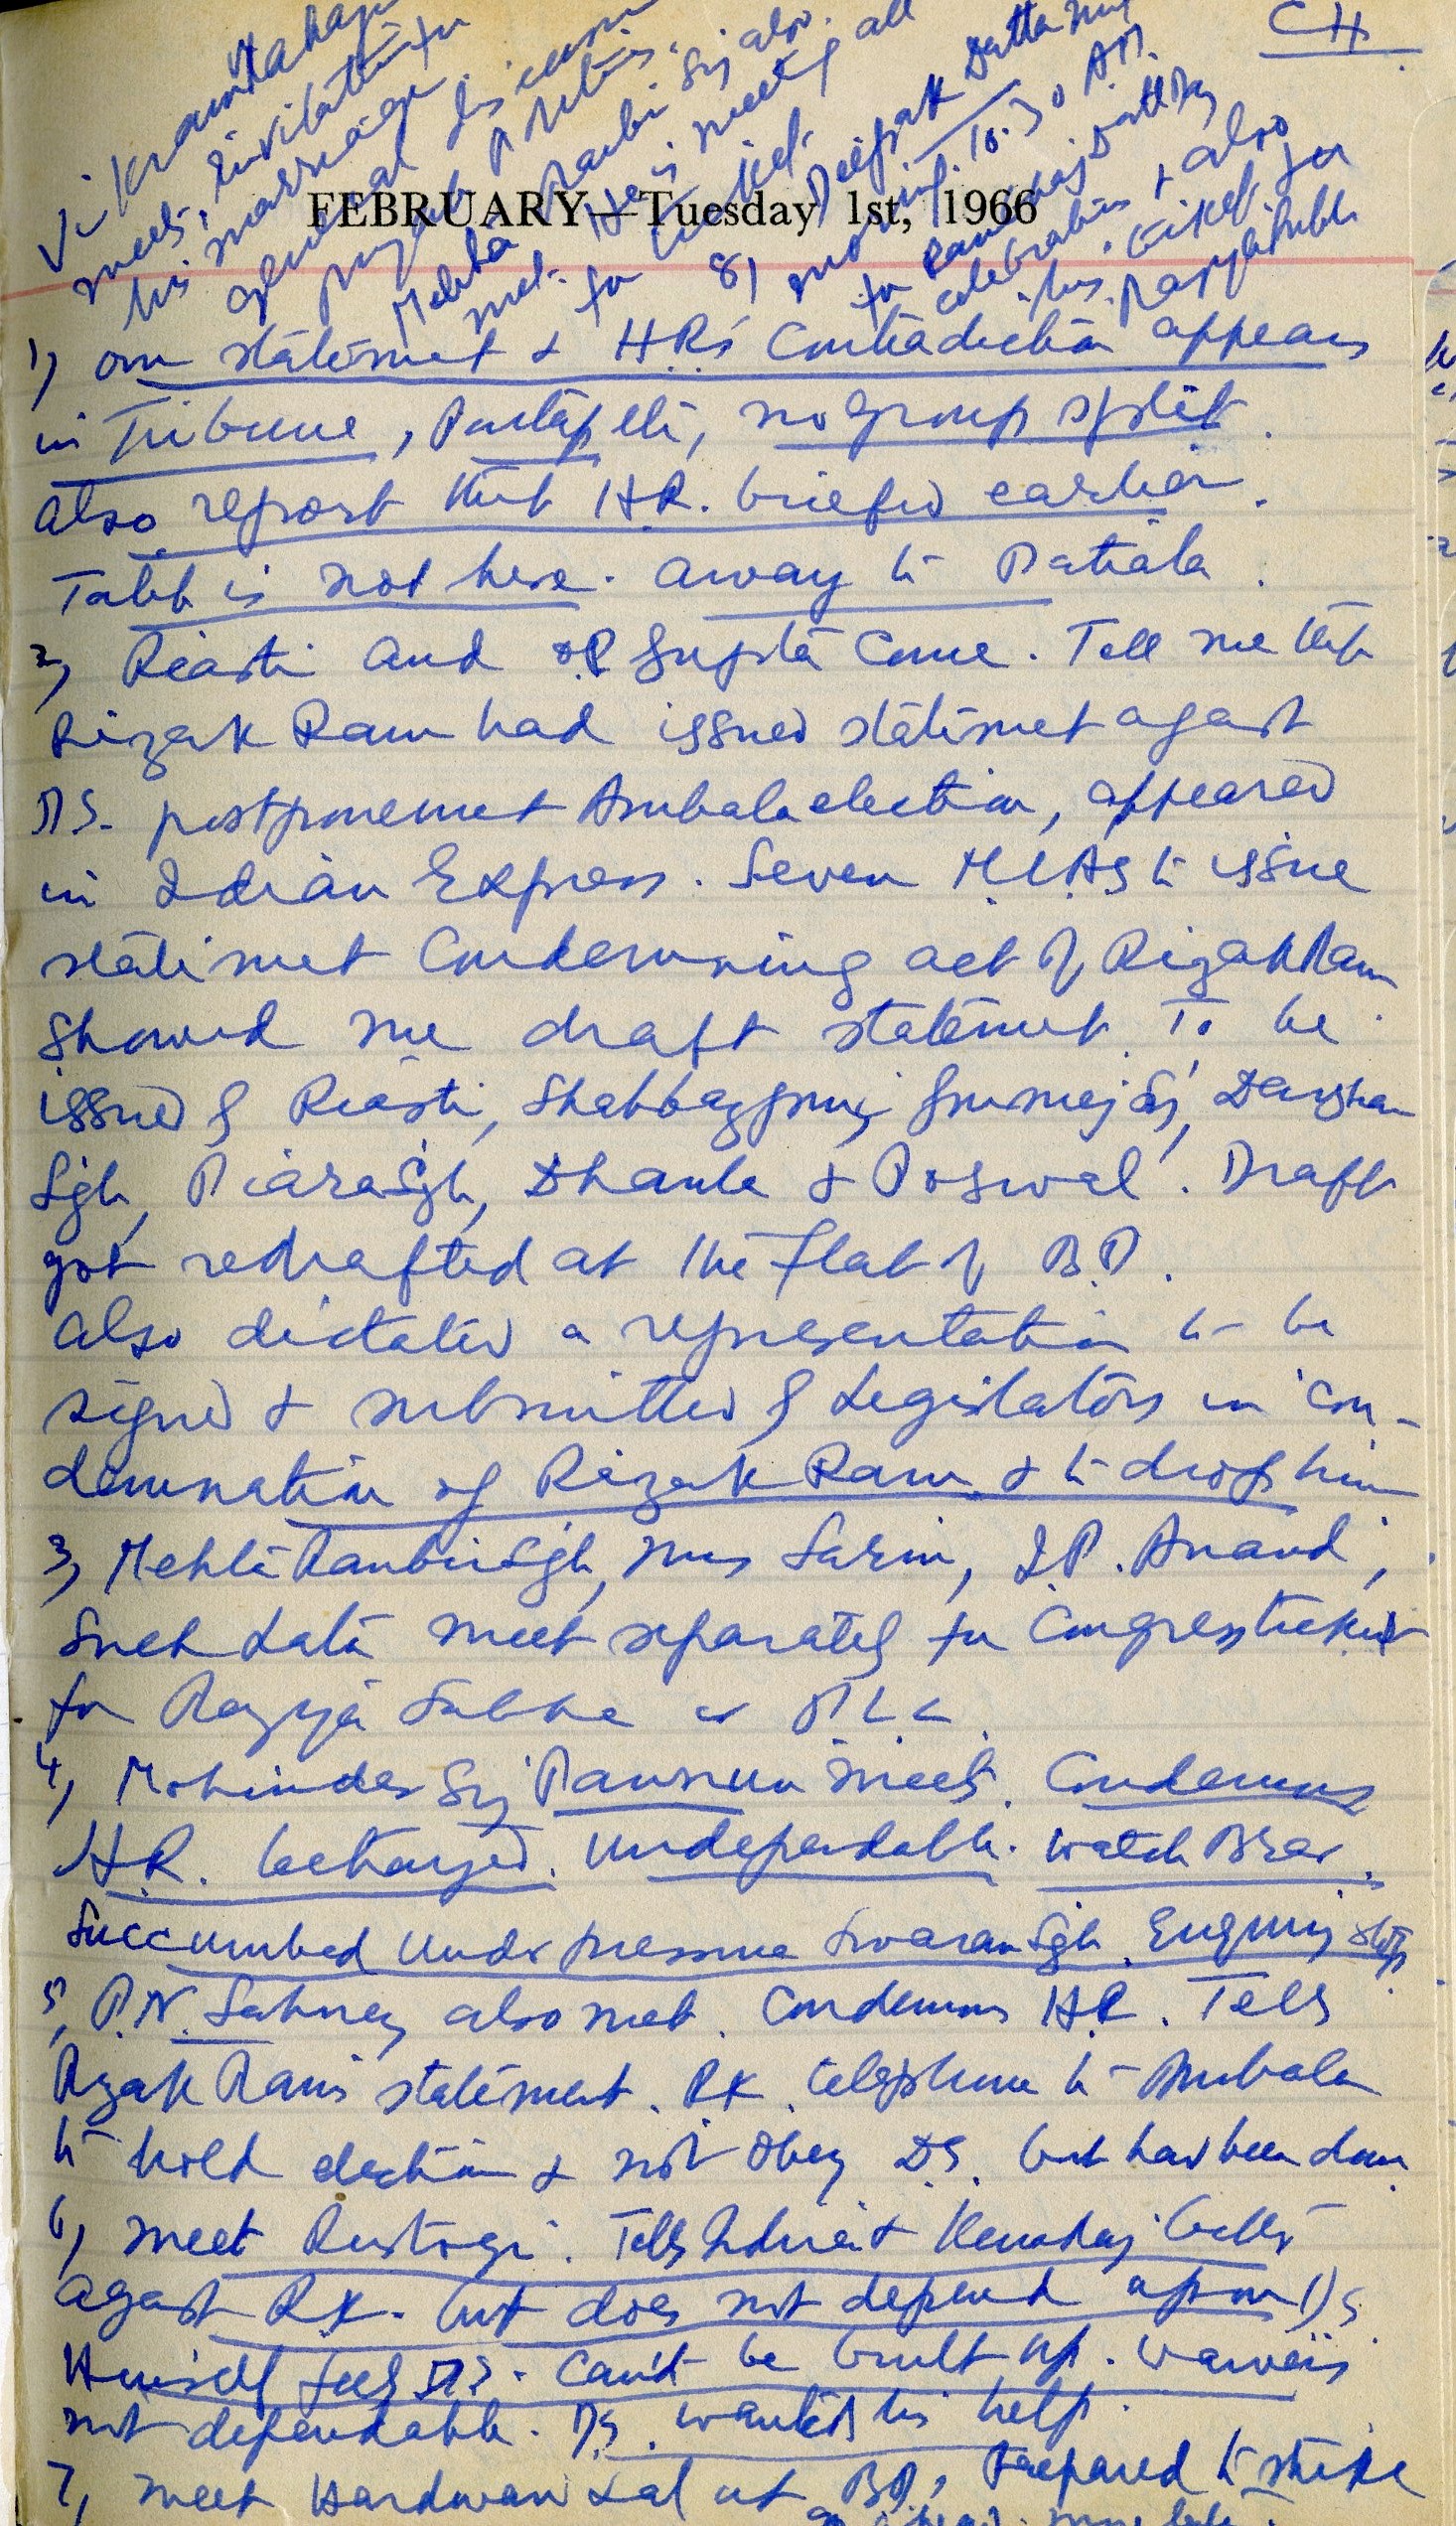 CH.
Vikramtahajn
meets, invitation for
his marriage
general discussion
punjab politics.
Mehta Ranbir Sgj also
met. He is meeting all
for ticket.
8) Deepak Datta
morning. 10.30 AM.
for
celebration + also
ticket for
FEBRUARY—Tuesday 1st, 1966
1) our statemet & HR's Contradiction appears
in Tribune, Partap etc, no group split.
also report that H.R. briefed earlier.
Talib is not here. away to Patiala.
2) Riasti and OP Gupta Come. Tell me that
Rizak Ram had issued statemet agast
DS. postponemet Ambala election, appeared
in Indian Express. Seven MLAs to issue
statemet Condemning act of Rizak Ram
Showed me draft statemet. To be
issued by Riasti, Shahbaz Gurmej Sgj, Darshan
Sgh, Piara Sgh, Dhaula & Poswal. Draft
got redrafted at the flat of B.D.
also dictated a representation to be
signed & submitted by Legislators in con-
demnation of Rizak Ram & to drop him
3) Mehta Ranbir Sgh, Mrs Sarin, I.P. Anand,
Sneh Lata meet separately for Congress ticket
for Rajya Sabha or M L C.
4) Mohinder Sgj Pannun meets. Condemns
H.R. betrayed. Undependable. Watch Brar.
Succumbed under pressure Swaran Sgh. Enquiry
5) P.N. Sahney also met. Condemns H.R. Tells
Rizak Ram's statement. RK. telephone to Ambala
to hold election & not obey DS. but had been done
6) meet Rustogi. Tells Indira & Kamraj both
agast RK. but does not depend upon DS.
Himself feels DS. Can't be built up.
not dependable. DS. wanted his help.
7) meet Hardwari Lal at BD, prepared to strike